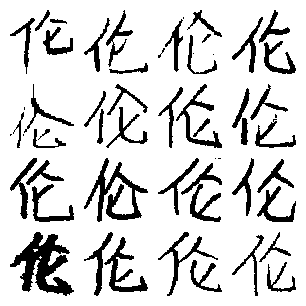 伦伦伦伦
伦伦伦伦
伦伦伦伦
伦伦伦伦